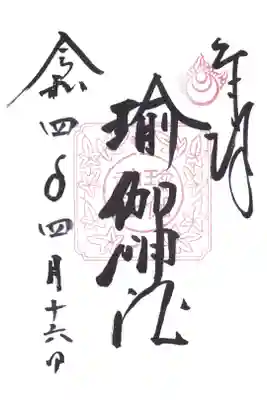 奉拝
瑜伽
令和四年四月十六日